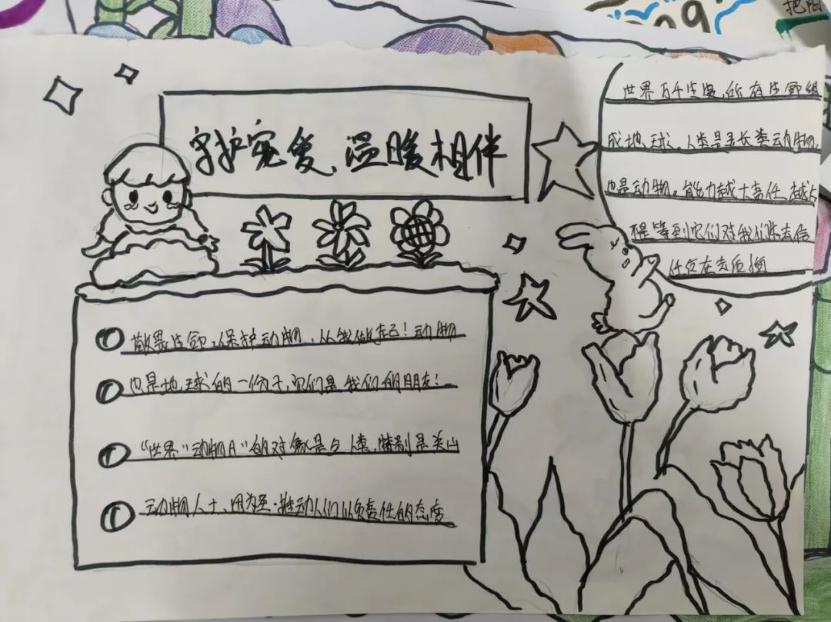 守护宠爱,温暖相伴
世界万千生灵,所有生命组
成地球,人类是手长类动物,
也是动物。能力越大责任越大
不是等到它们对我们失去信
任它在去后悔
敬畏生命,保护动物,从我做起!动物
也是地球的一份子,它们是我们的朋友!
"世界"动物日"的对象是与人类,特别是关心
动物人士、用为至.推动人们以负责任的态度